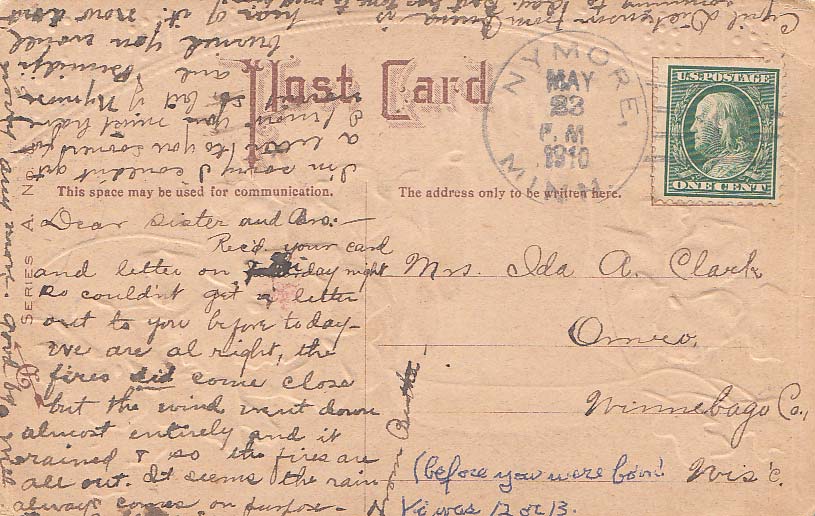 Post Card
NYMORE,
MAY
23
P.M
1910
MINN.
U.S. POSTAGE
ONE CENT
This space may be used for communication.
The address only to be written here.
SERIES A. NR.
Dear Sister and Bro:—
Rec'd your card
and letter on Friday night
so couldn't get a letter
out to you before today—
We are al right, the
fires did come close
but the wind went down
almost entirely and it
rained & so the fires are
all out. It seems the rain
always comes on purpose—
I'm sorry I couldn't get
a letter to you sooner for
I know you must have
a bit of Nymore
and Bemidji
burned you would
hear of it. now don't
worry any more. Good bye
Cyril Dickenson from Omro is
coming to
Mrs. Ida A. Clark
Omro,
Winnebago Co.,
Wis'c.
(before you were born!
Vi was 12 or 13.